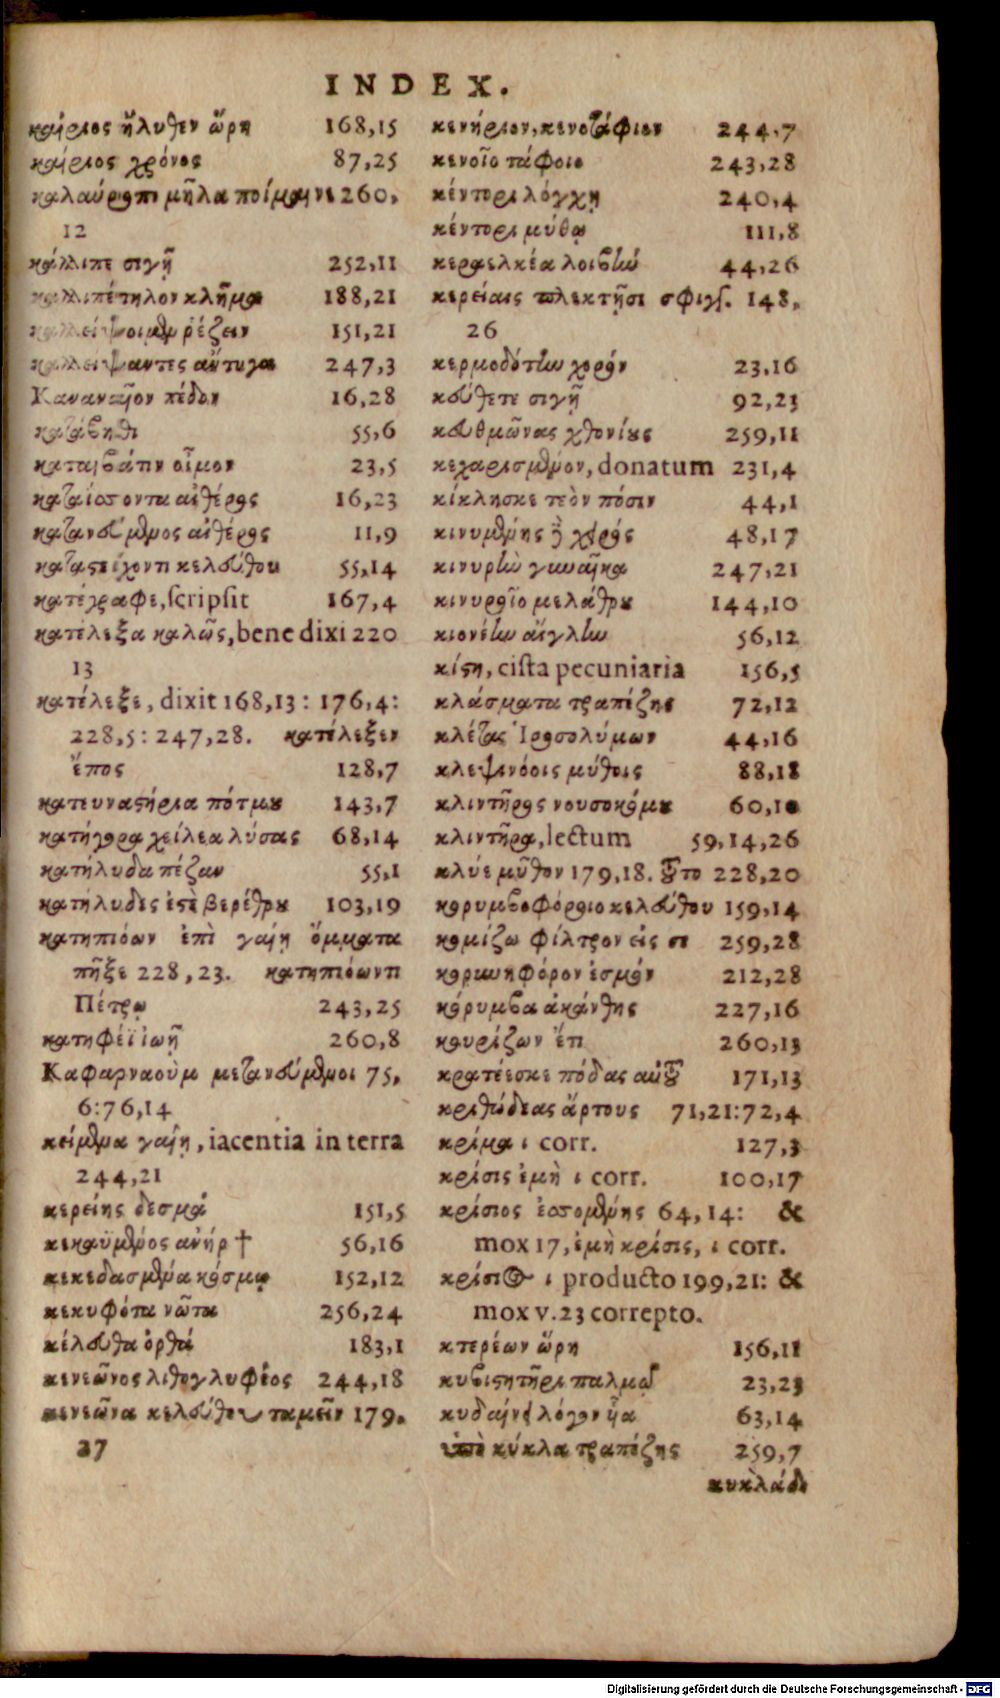 INDEX.
καίριος ἤλυθεν ὥρη 168,15
καίριος χρόνος 87,25
καλαύροπι μῆλα ποίμαινε 260,
12
κάλλιπε σιγῇ 252,11
καλλιπέτηλον κλῆμα 188,21
καλλείψοιμεν ῥέζειν 151,21
καλλείψαντες ἄντυγα 247,3
Καναναῖον πέδον 16,28
κατάβηθι 55,6
καταιβάτιν οἶμον 23,5
καταίσσοντα αἰθέρος 16,23
κατανευόμενος αἰθέρος 11,9
καταστείχοντι κελεύθου 55,14
κατέγραφε, scripsit 167,4
κατέλεξα καλῶς, bene dixi 220
13
κατέλεξε, dixit 168,13: 176,4:
228,5: 247,28. κατέλεξεν
ἔπος 128,7
κατευναστήρια πότμου 143,7
κατήγορα χείλεα λύσας 68,14
κατήλυδα πέζαν 55,1
κατήλυδες ἐπὶ βερέθρου 103,19
κατηπιόων ἐπὶ γαίῃ ὄμματα
πῆξε 228,23. κατηπιόωντι
Πέτρῳ 243,25
κατηφέϊ ἰωῇ 260,8
Καφαρναοὺμ μετανεύμενοι 75,
6:76,14
κείμενα γαίῃ, iacentia in terra
244,21
κερείης δεσμά 151,5
κεκαϋμένος ἀνήρ † 56,16
κεκεδασμένα κόσμῳ 152,12
κεκυφότα νῶτα 256,24
κέλευθα ὀρθά 183,1
κενεῶνος λιθογλυφέος 244,18
κενεῶνα κελεύθου ταμεῖν 179,
27
κενήριον, κενοτάφιον 244,7
κενοῖο τάφοιο 243,28
κέντορι λόγχῃ 240,4
κέντορι μύθῳ 111,8
κεραελκέα λοιβὴν 44,26
κερείαις πλεκτῇσι σφιγξ. 148,
26
κερμοδότην χορόν 23,16
κεύθετε σιγῇ 92,23
κευθμῶνας χθονίους 259,11
κεχαρισμένον, donatum 231,4
κίκλησκε τεὸν πόσιν 44,1
κινυμένης ἢ χειρός 48,17
κινυρὴν γυναῖκα 247,21
κινυροῖο μελάθρου 144,10
κιονέην αἴγλην 56,12
κίστη, cista pecuniaria 156,5
κλάσματα τραπέζης 72,12
κλέτας Ἱεροσολύμων 44,16
κλεψινόοις μύθοις 88,18
κλιντῆρος νουσοκόμου 60,10
κλιντῆρα, lectum 59,14,26
κλύε μῦθον 179,18. τοῦτο 228,20
κορυμβοφόροιο κελεύθου 159,14
κομίζω φίλτρον εἰς σε 259,28
κορωνηφόρον ἐσμόν 212,28
κόρυμβα ἀκάνθης 227,16
κουρίζων ἔτι 260,13
κρατέεσκε πόδας αὐτοῦ 171,13
κριθώδεας ἄρτους 71,21:72,4
κρίμα ι corr. 127,3
κρίσις ἐμὴ ι corr. 100,17
κρίσιος ἐσσομένης 64,14: &
mox 17, ἐμὴ κρίσις, ι corr.
κρίσιος ι producto 199,21: &
mox v.23 correpto.
κτερέων ὥρη 156,11
κυβιστητῆρι παλμῷ 23,23
κυδαίνει λόγον ἧα 63,14
ὑπὸ κύκλα τραπέζης 259,7
κυκλάδι
Digitalisierung gefördert durch die Deutsche Forschungsgemeinschaft - DFG